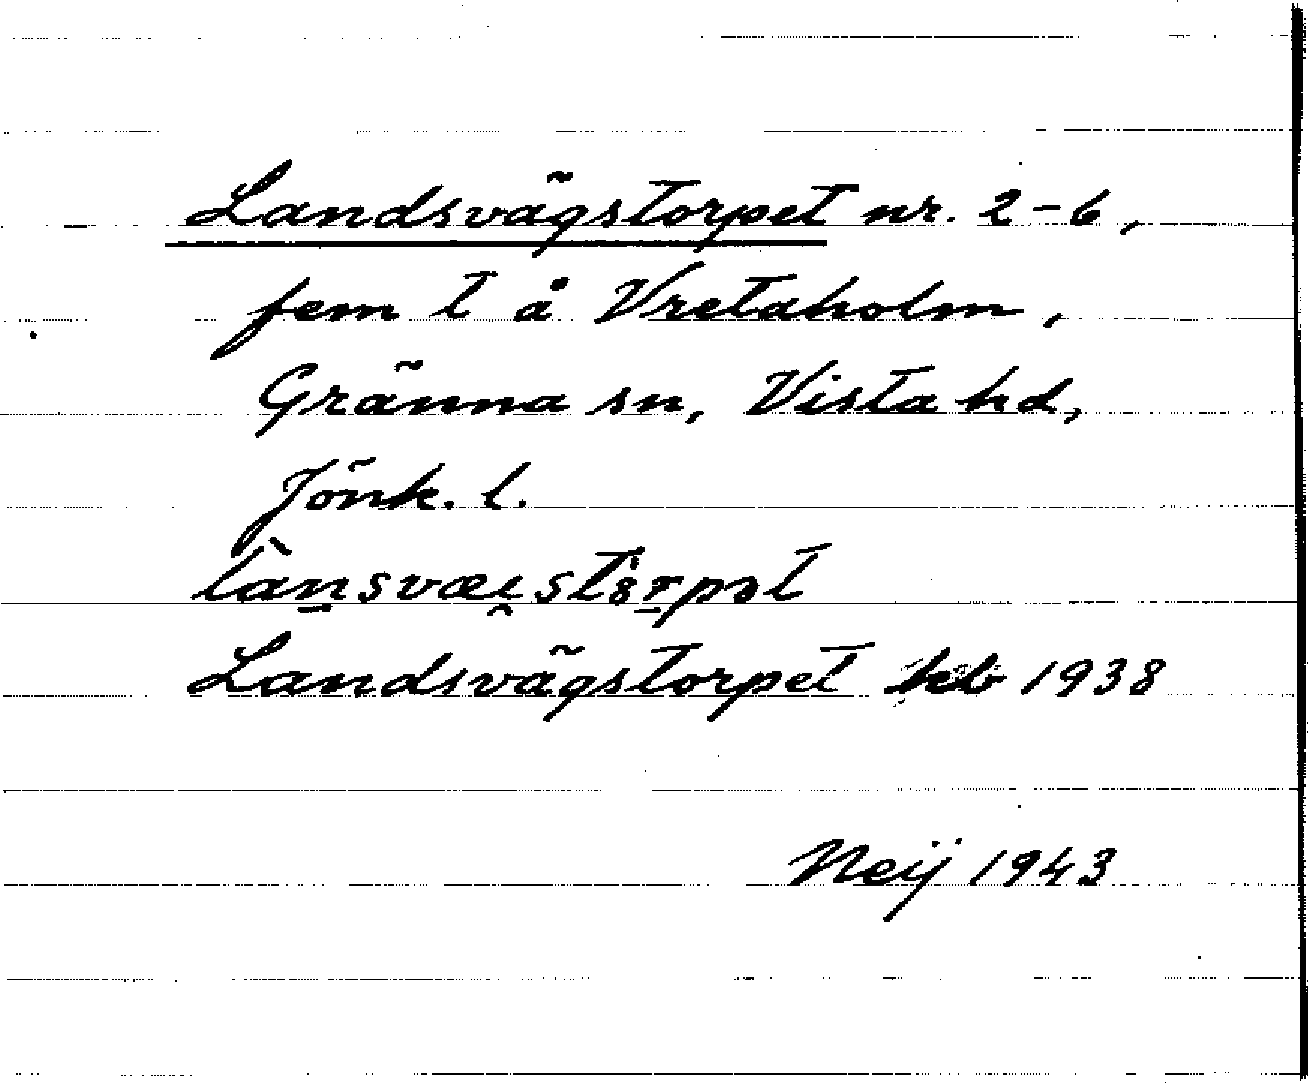 Landsvägstorpet nr. 2-6,
fem t å Vretaholm,
Gränna sn, Vista hd,
Jönk. l.
lànsvæi̯stȯrpət
Landsvägstorpet kb 1938
Neij 1943